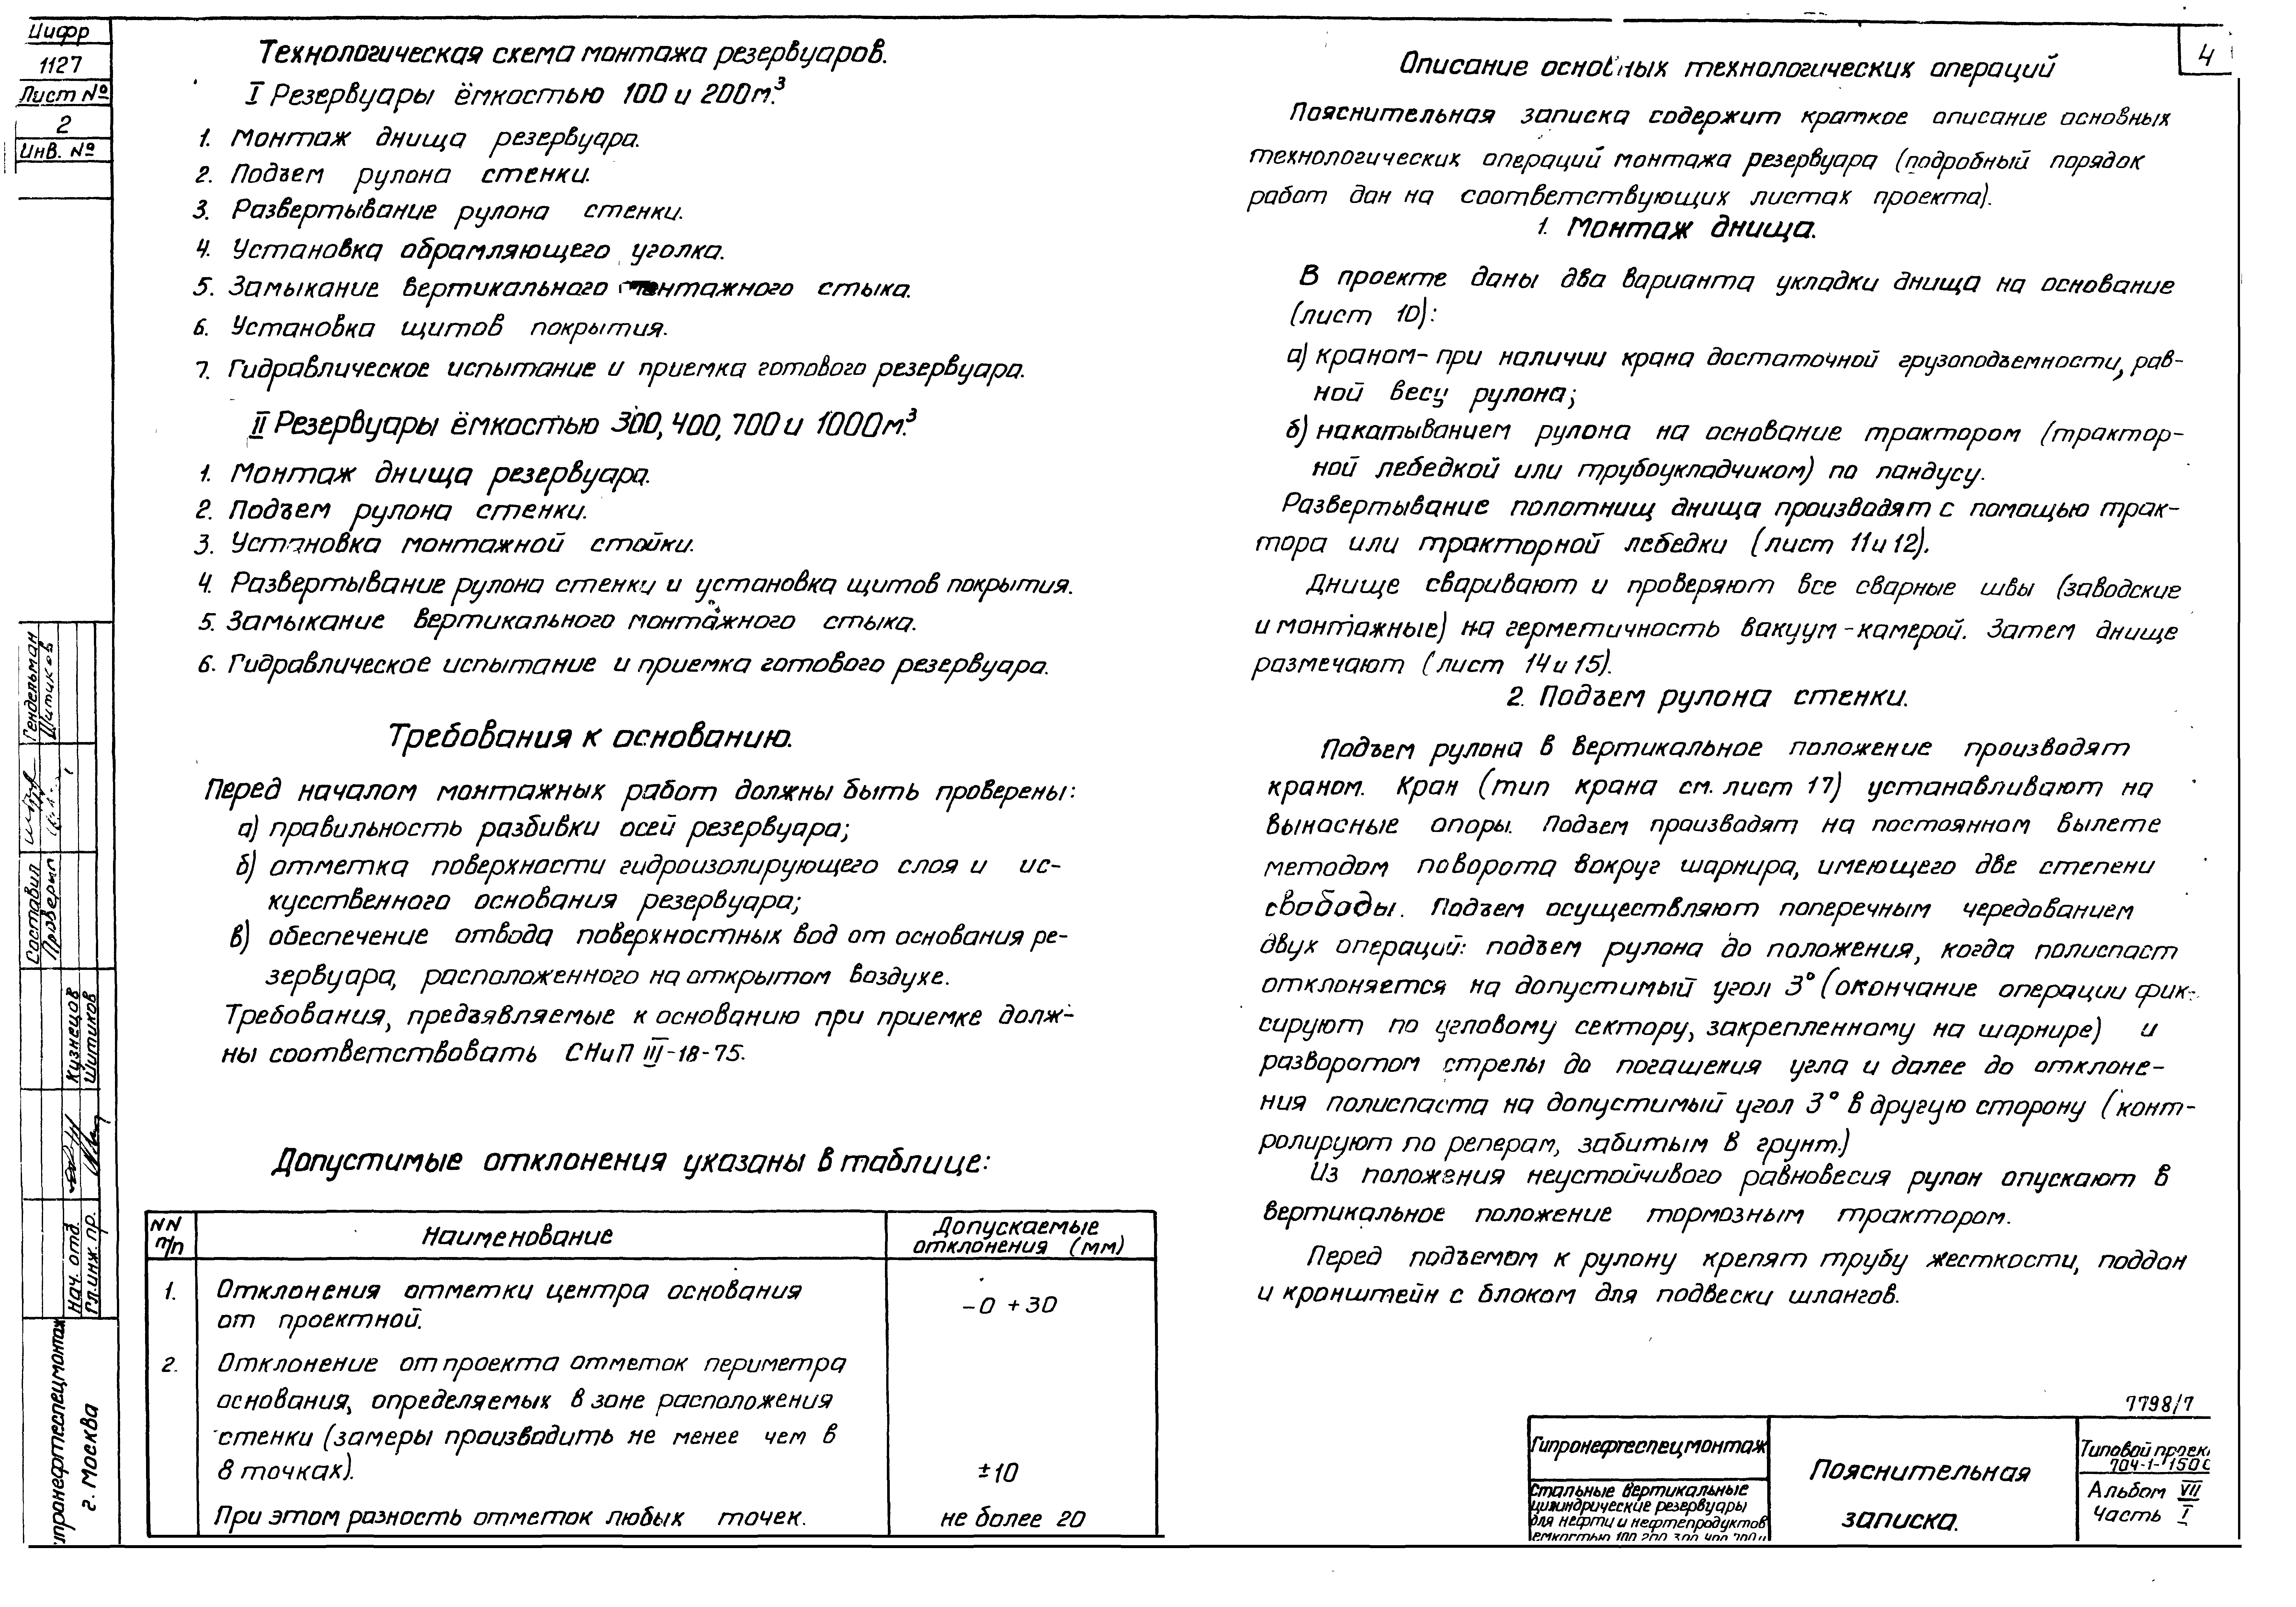 Цифр
1127
Лист №
2
Инв. №
Технологическая схема монтажа резервуаров.
I Резервуары ёмкостью 100 и 200м.³
1. Монтаж днища резервуара.
2. Подъем рулона стенки.
3. Развертывание рулона стенки.
4. Установка обрамляющего уголка.
5. Замыкание вертикального монтажного стыка.
6. Установка щитов покрытия.
7. Гидравлическое испытание и приемка готового резервуара.
II Резервуары ёмкостью 300, 400, 700 и 1000м.³
1. Монтаж днища резервуара.
2. Подъем рулона стенки.
3. Установка монтажной стойки.
4. Развертывание рулона стенки и установка щитов покрытия.
5. Замыкание вертикального монтажного стыка.
6. Гидравлическое испытание и приемка готового резервуара.
Требования к основанию.
Перед началом монтажных работ должны быть проверены:
а) правильность разбивки осей резервуара;
б) отметка поверхности гидроизолирующего слоя и ис-
кусственного основания резервуара;
в) обеспечение отвода поверхностных вод от основания ре-
зервуара, расположенного на открытом воздухе.
Требования, предъявляемые к основанию при приемке долж-
ны соответствовать СНиП III-18-75.
Допустимые отклонения указаны в таблице:
NN п/п
Наименование
Допускаемые отклонения (мм)
1. Отклонения отметки центра основания
от проектной.
-0 +30
2. Отклонение от проекта отметок периметра
основания, определяемых в зоне расположения
стенки (замеры производить не менее чем в
8 точках).
±10
При этом разность отметок любых точек.
не более 20
4
Описание основных технологических операций
Пояснительная записка содержит краткое описание основных
технологических операций монтажа резервуара (подробный порядок
работ дан на соответствующих листах проекта).
1. Монтаж днища.
В проекте даны два варианта укладки днища на основание
(лист 10):
а) краном - при наличии крана достаточной грузоподъемности, рав-
ной весу рулона;
б) накатыванием рулона на основание трактором (трактор-
ной лебедкой или трубоукладчиком) по пандусу.
Развертывание полотнищ днища производят с помощью трак-
тора или тракторной лебедки (лист 11 и 12).
Днище сваривают и проверяют все сварные швы (заводские
и монтажные) на герметичность вакуум-камерой. Затем днище
размечают (лист 14 и 15).
2. Подъем рулона стенки.
Подъем рулона в вертикальное положение производят
краном. Кран (тип крана см. лист 17) устанавливают на
выносные опоры. Подъем производят на постоянном вылете
методом поворота вокруг шарнира, имеющего две степени
свободы. Подъем осуществляют поперечным чередованием
двух операций: подъем рулона до положения, когда полиспаст
отклоняется на допустимый угол 3° (окончание операции фик-
сируют по угловому сектору, закрепленному на шарнире) и
разворотом стрелы до погашения угла и далее до отклоне-
ния полиспаста на допустимый угол 3° в другую сторону (конт-
ролируют по реперам, забитым в грунт.)
Из положения неустойчивого равновесия рулон опускают в
вертикальное положение тормозным трактором.
Перед подъемом к рулону крепят трубу жесткости, поддон
и кронштейн с блоком для подвески шлангов.
7798/7
Гипронефтеспецмонтаж
Стальные вертикальные
цилиндрические резервуары
для нефти и нефтепродуктов
емкостью 100 200 300 400 700 и
Пояснительная
записка.
Типовой проек
704-1-150С
Альбом VII
Часть I
Гендельман
Шитиков
Составил
Проверил
Кузнецов
Шитиков
Нач. отд.
Гл. инж. пр.
ипронефтеспецмонтаж
г. Москва